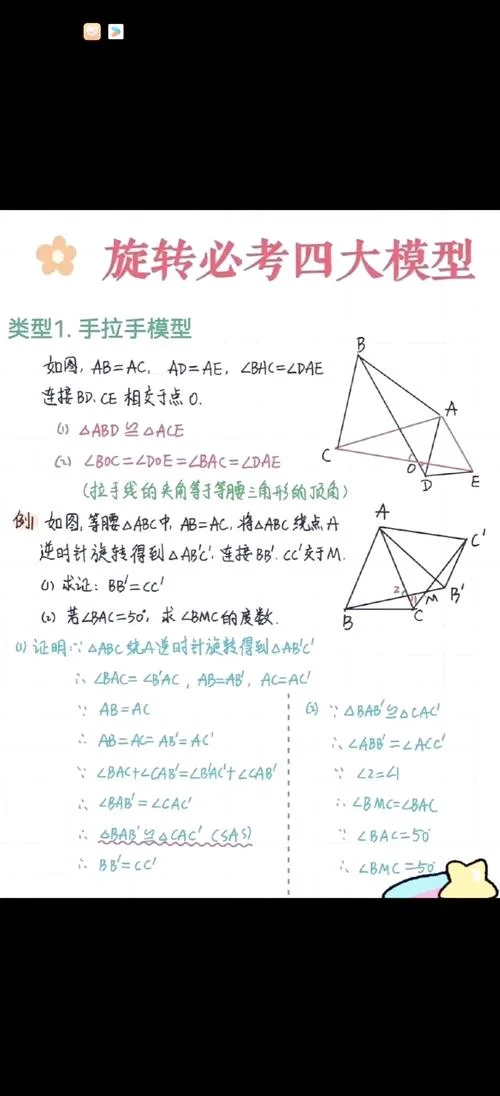 旋转必考四大模型
类型1. 手拉手模型
如图, AB=AC, AD=AE, ∠BAC=∠DAE
连接BD、CE 相交于点O.
(1) △ABD≌△ACE
(2) ∠BOC=∠DOE=∠BAC=∠DAE
(拉手线的夹角等于等腰三角形的顶角)
B
A
C
O
D
E
例 如图, 等腰△ABC中, AB=AC, 将△ABC绕点A
逆时针旋转得到△AB'C', 连接BB'. CC'交于M.
(1) 求证: BB'=CC'
(2) 若∠BAC=50°, 求∠BMC的度数.
A
C'
2
1
M
B'
B
C
(1) 证明: ∵ △ABC绕A逆时针旋转得到△AB'C'
∴ ∠BAC=∠B'AC', AB=AB', AC=AC'
∵ AB=AC
∴ AB=AC=AB'=AC'
∵ ∠BAC+∠CAB'=∠B'AC'+∠CAB'
∴ ∠BAB'=∠CAC'
∴ △BAB'≌△CAC' (SAS)
∴ BB'=CC'
(2) ∵ △BAB'≌△CAC'
∴ ∠ABB'=∠ACC'
∵ ∠2=∠1
∴ ∠BMC=∠BAC
∵ ∠BAC=50°
∴ ∠BMC=50°